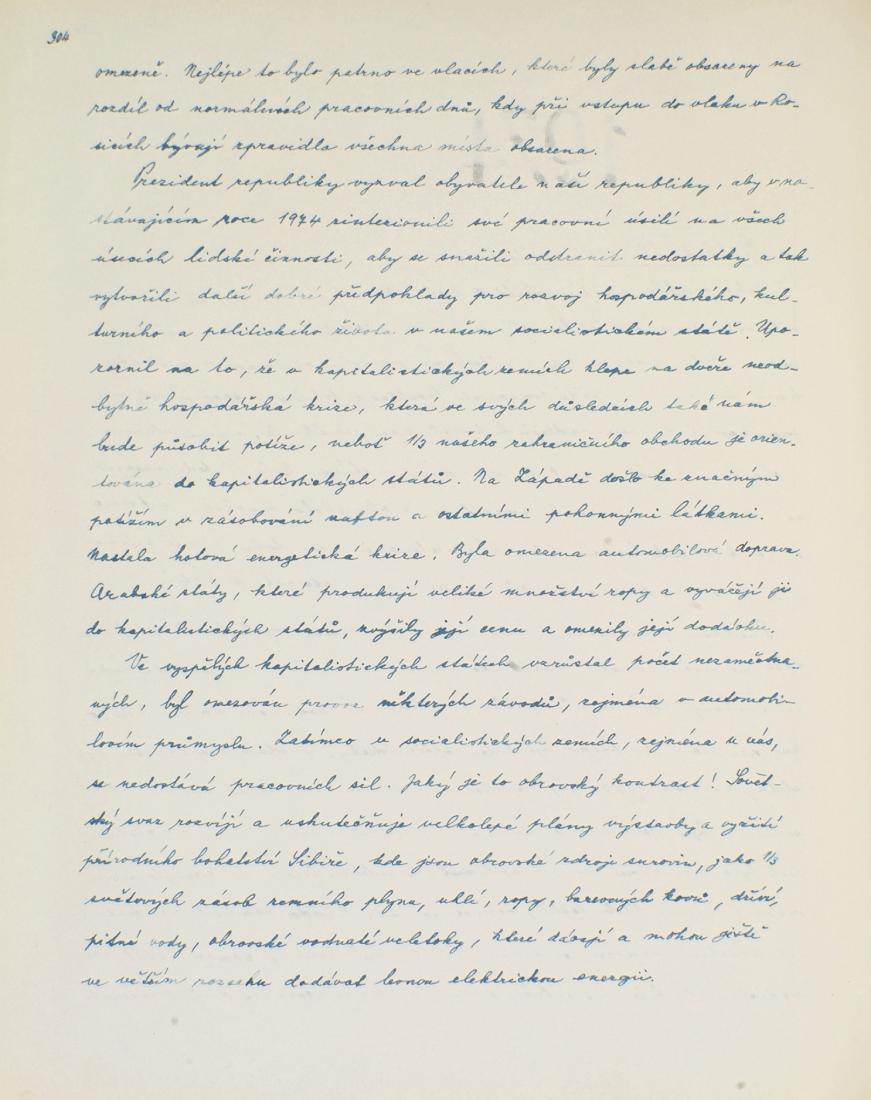 304
omezeně. Nejlépe to bylo patrno ve vlacích, které byly slabě obsazeny na
rozdíl od normálních pracovních dnů, kdy při vstupu do vlaku v Ro-
sicích bývají zpravidla všechna místa obsazena.
Prezident republiky vyzval obyvatele naší republiky, aby v na-
stávajícím roce 1974 zintezionili své pracovní úsilí na všech
úsecích lidské činnosti, aby se snažili odstranit nedostatky a tak
vytvořili další dobré předpoklady pro rozvoj hospodářského, kul-
turního a politického života v našem socialistickém státě. Upo-
zornil na to, že v kapitalistických zemích klepe na dveře neod-
bytně hospodářská krize, která ve svých důsledcích také nám
bude působit potíže, neboť 1/3 našeho zahraničního obchodu je orien-
tována do kapitalistických států. Na Západě došlo ke značným
potížím v zásobování naftou a ostatními pohonnými látkami.
Nastala hotová energetická krize. Byla omezena automobilová doprava.
Arabské státy, které produkují veliké množství ropy a vyvážejí ji
do kapitalistických států, zvýšily její cenu a omezily její dodávku.
Ve vyspělých kapitalistických státech vzrůstal počet nezaměstna-
ných, byl omezován provoz některých závodů, zejména v automobi-
lovém průmyslu. Zatímco v socialistických zemích, zejména u nás,
se nedostává pracovních sil. Jaký je to obrovský kontrast! Sovět-
ský svaz rozvíjí a uskutečňuje velkolepé plány výstavby a využití
přírodního bohatství Sibiře, kde jsou obrovské zdroje surovin, jako 1/3
světových zásob zemního plynu, uhlí, ropy, barevných kovů, dříví,
pitné vody, obrovské vodnaté veletoky, které dávají a mohou ještě
ve větším rozsahu dodávat levnou elektrickou energii.